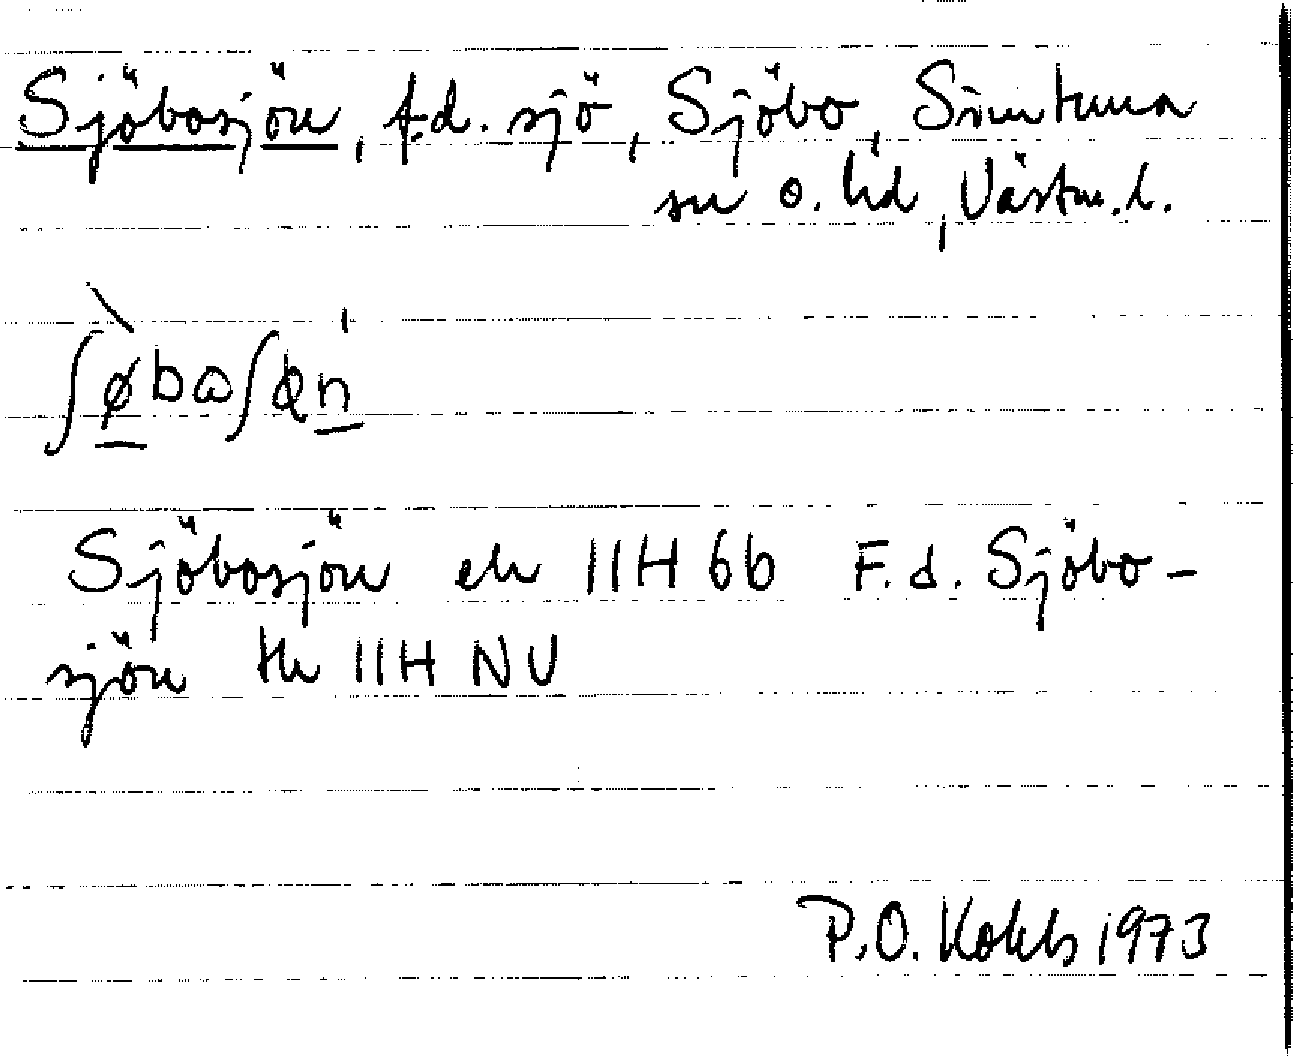 Sjöbosjön, f.d. sjö, Sjöbo, Simtuna
sn o. hd, Västm.l.
Sjöbosjön ek 11H 6b F.d. Sjöbo-
sjön tk 11H NV
P.O. 1973